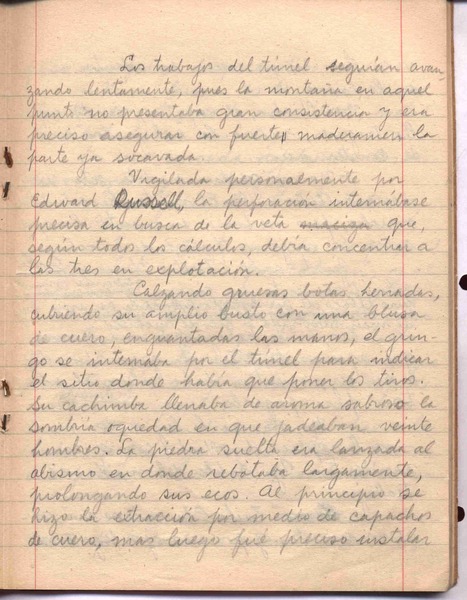 Los trabajos del túnel seguían avan-
zando lentamente, pues la montaña en aquel
punto no presentaba gran consistencia y era
preciso asegurar con fuerte maderamen la
parte ya socavada.
Vigilada personalmente por
Edward Russell, la perforación internábase
precisa en busca de la veta maciza que,
según todos los cálculos, debía concentrar a
las tres en explotación.
Calzando gruesas botas herradas,
cubriendo su amplio busto con una blusa
de cuero, enguantadas las manos, el grin-
go se internaba por el túnel para indicar
el sitio donde había que poner los tiros.
Su cachimba llenaba de aroma sabroso la
sombría oquedad en que jadeaban veinte
hombres. La piedra suelta era lanzada al
abismo en donde rebotaba largamente,
prolongando sus ecos. Al principio se
hizo la extracción por medio de capachos
de cuero, mas luego fué preciso instalar